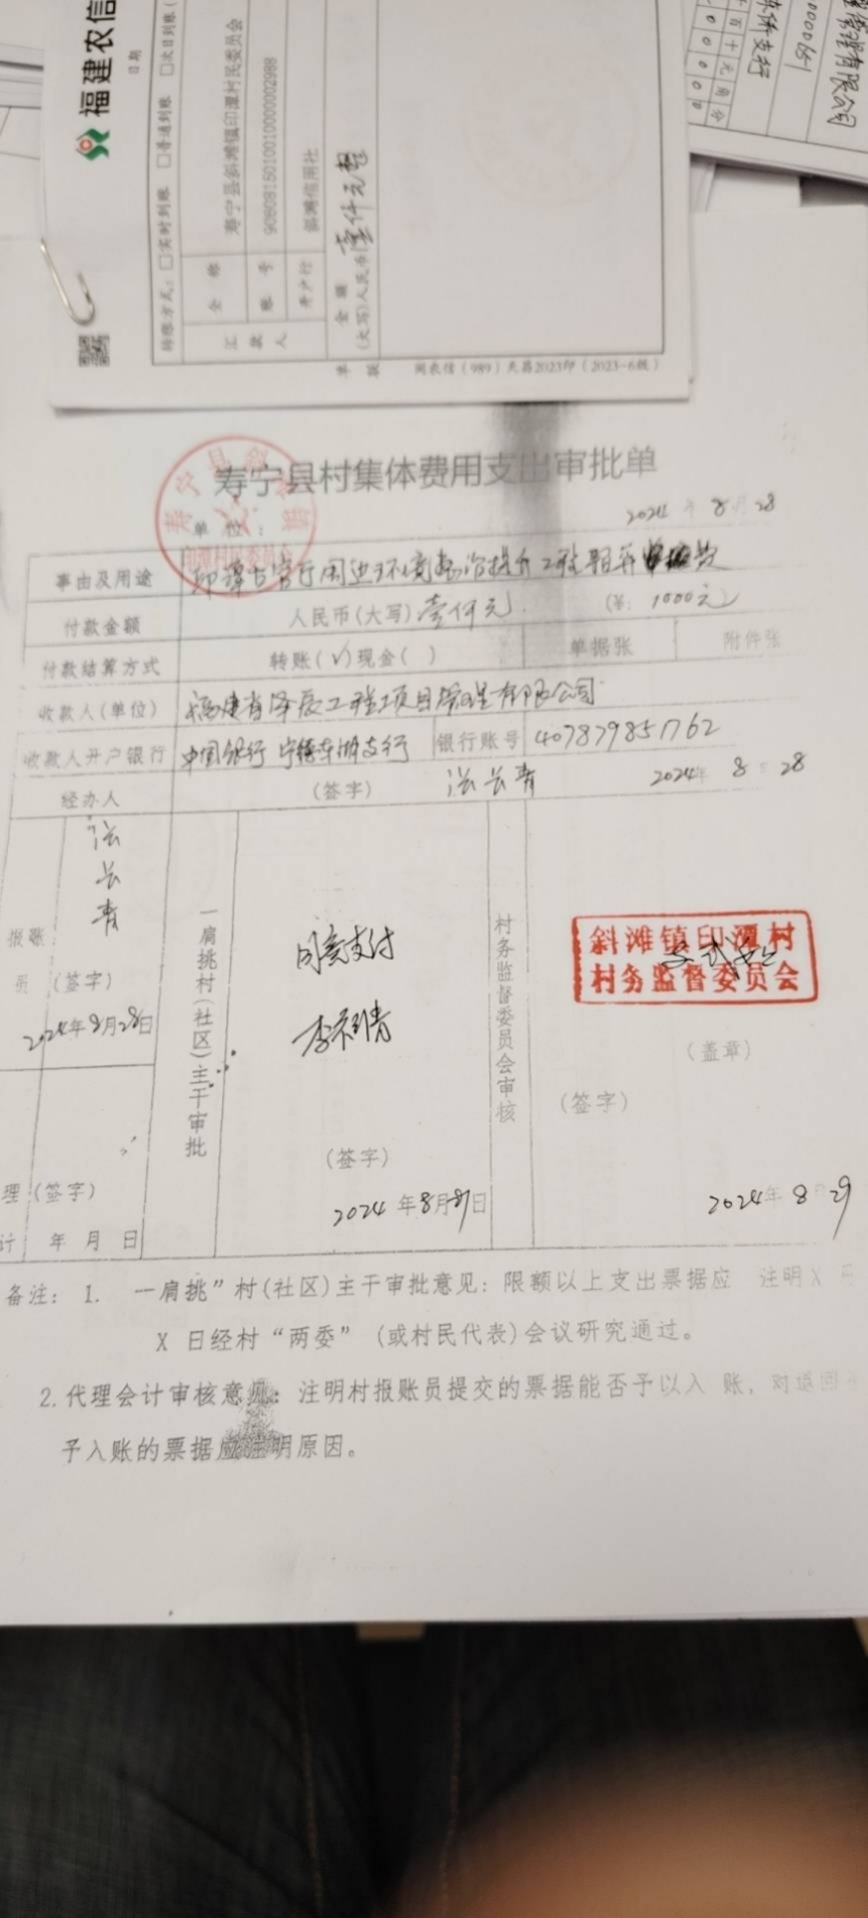 福建农信
日期
转账方式：□实时到账 □普通到账 □次日到账
汇款人
全称 寿宁县斜滩镇印潭村民委员会
账号 9080815010010000002988
开户行 斜滩信用社
金额
(大写)人民币 壹仟元整
闽农信（989）天昌2023印（2023-6版）
管理有限公司
支行
百十元角分
寿宁县村集体费用支出审批单
单位：
2024年8月28
事由及用途 印潭古官厅周边环境整治提升工程 费
付款金额 人民币(大写)壹仟元. (¥: 1000元)
付款结算方式 转账(√)现金( ) 单据张 附件张
收款人(单位) 福建省泽辰工程项目管理有限公司
收款人开户银行 中国银行宁德东湖支行 银行账号 407879851762
经办人 (签字) 张长青 2024年8 28
报账员 张长青
(签字)
2024年8月28日
一肩挑村(社区)主干审批
同意支付
(签字)
2024年8月 日
村务监督委员会审核
斜滩镇印潭村
村务监督委员会
(盖章)
(签字)
2024年8 29
理 (签字)
计 年月日
备注：1. 一肩挑”村(社区)主干审批意见：限额以上支出票据应 注明X
X 日经村“两委”(或村民代表)会议研究通过。
2.代理会计审核意见：注明村报账员提交的票据能否予以入 账，对退回
予入账的票据应注明原因。